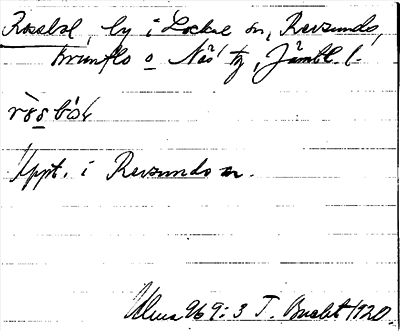 Rossbol, by i Lockne sn, Revsunds,
Brunflo o Näs' tg, Jämtl. l.
Uppt. i Revsunds sn.
Ulma 969:3 T. Bucht 1920